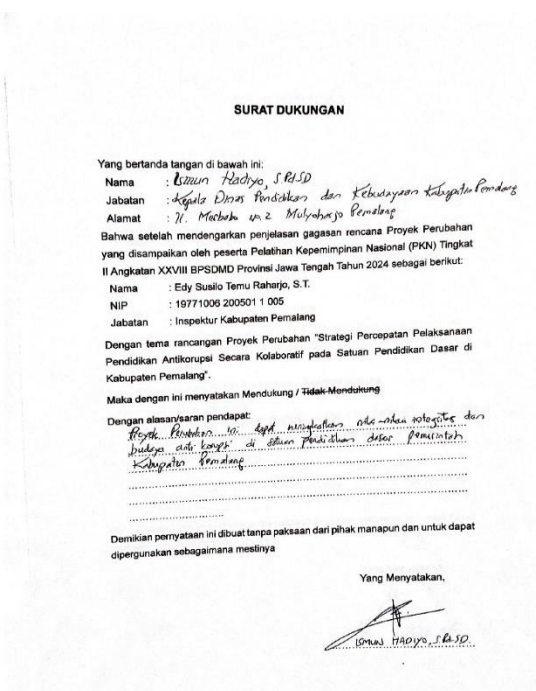 SURAT DUKUNGAN
Yang bertanda tangan di bawah ini:
Nama : Ismun Hadiyo, S.Pd.SD
Jabatan : Kepala Dinas Pendidikan dan Kebudayaan Kabupaten Pemalang
Alamat : Jl. Merbabu no.2 Mulyoharjo Pemalang
Bahwa setelah mendengarkan penjelasan gagasan rencana Proyek Perubahan
yang disampaikan oleh peserta Pelatihan Kepemimpinan Nasional (PKN) Tingkat
II Angkatan XXVIII BPSDMD Provinsi Jawa Tengah Tahun 2024 sebagai berikut:
Nama : Edy Susilo Temu Raharjo, S.T.
NIP : 19771006 200501 1 005
Jabatan : Inspektur Kabupaten Pemalang
Dengan tema rancangan Proyek Perubahan "Strategi Percepatan Pelaksanaan
Pendidikan Antikorupsi Secara Kolaboratif pada Satuan Pendidikan Dasar di
Kabupaten Pemalang".
Maka dengan ini menyatakan Mendukung / Tidak Mendukung
Dengan alasan/saran pendapat:
Proyek Perubahan ini dapat meningkatkan nilai-nilai integritas dan
budaya anti korupsi di satuan pendidikan dasar pemerintah
Kabupaten Pemalang
Demikian pernyataan ini dibuat tanpa paksaan dari pihak manapun dan untuk dapat
dipergunakan sebagaimana mestinya
Yang Menyatakan,
ISMUN HADIYO, S.Pd.SD.